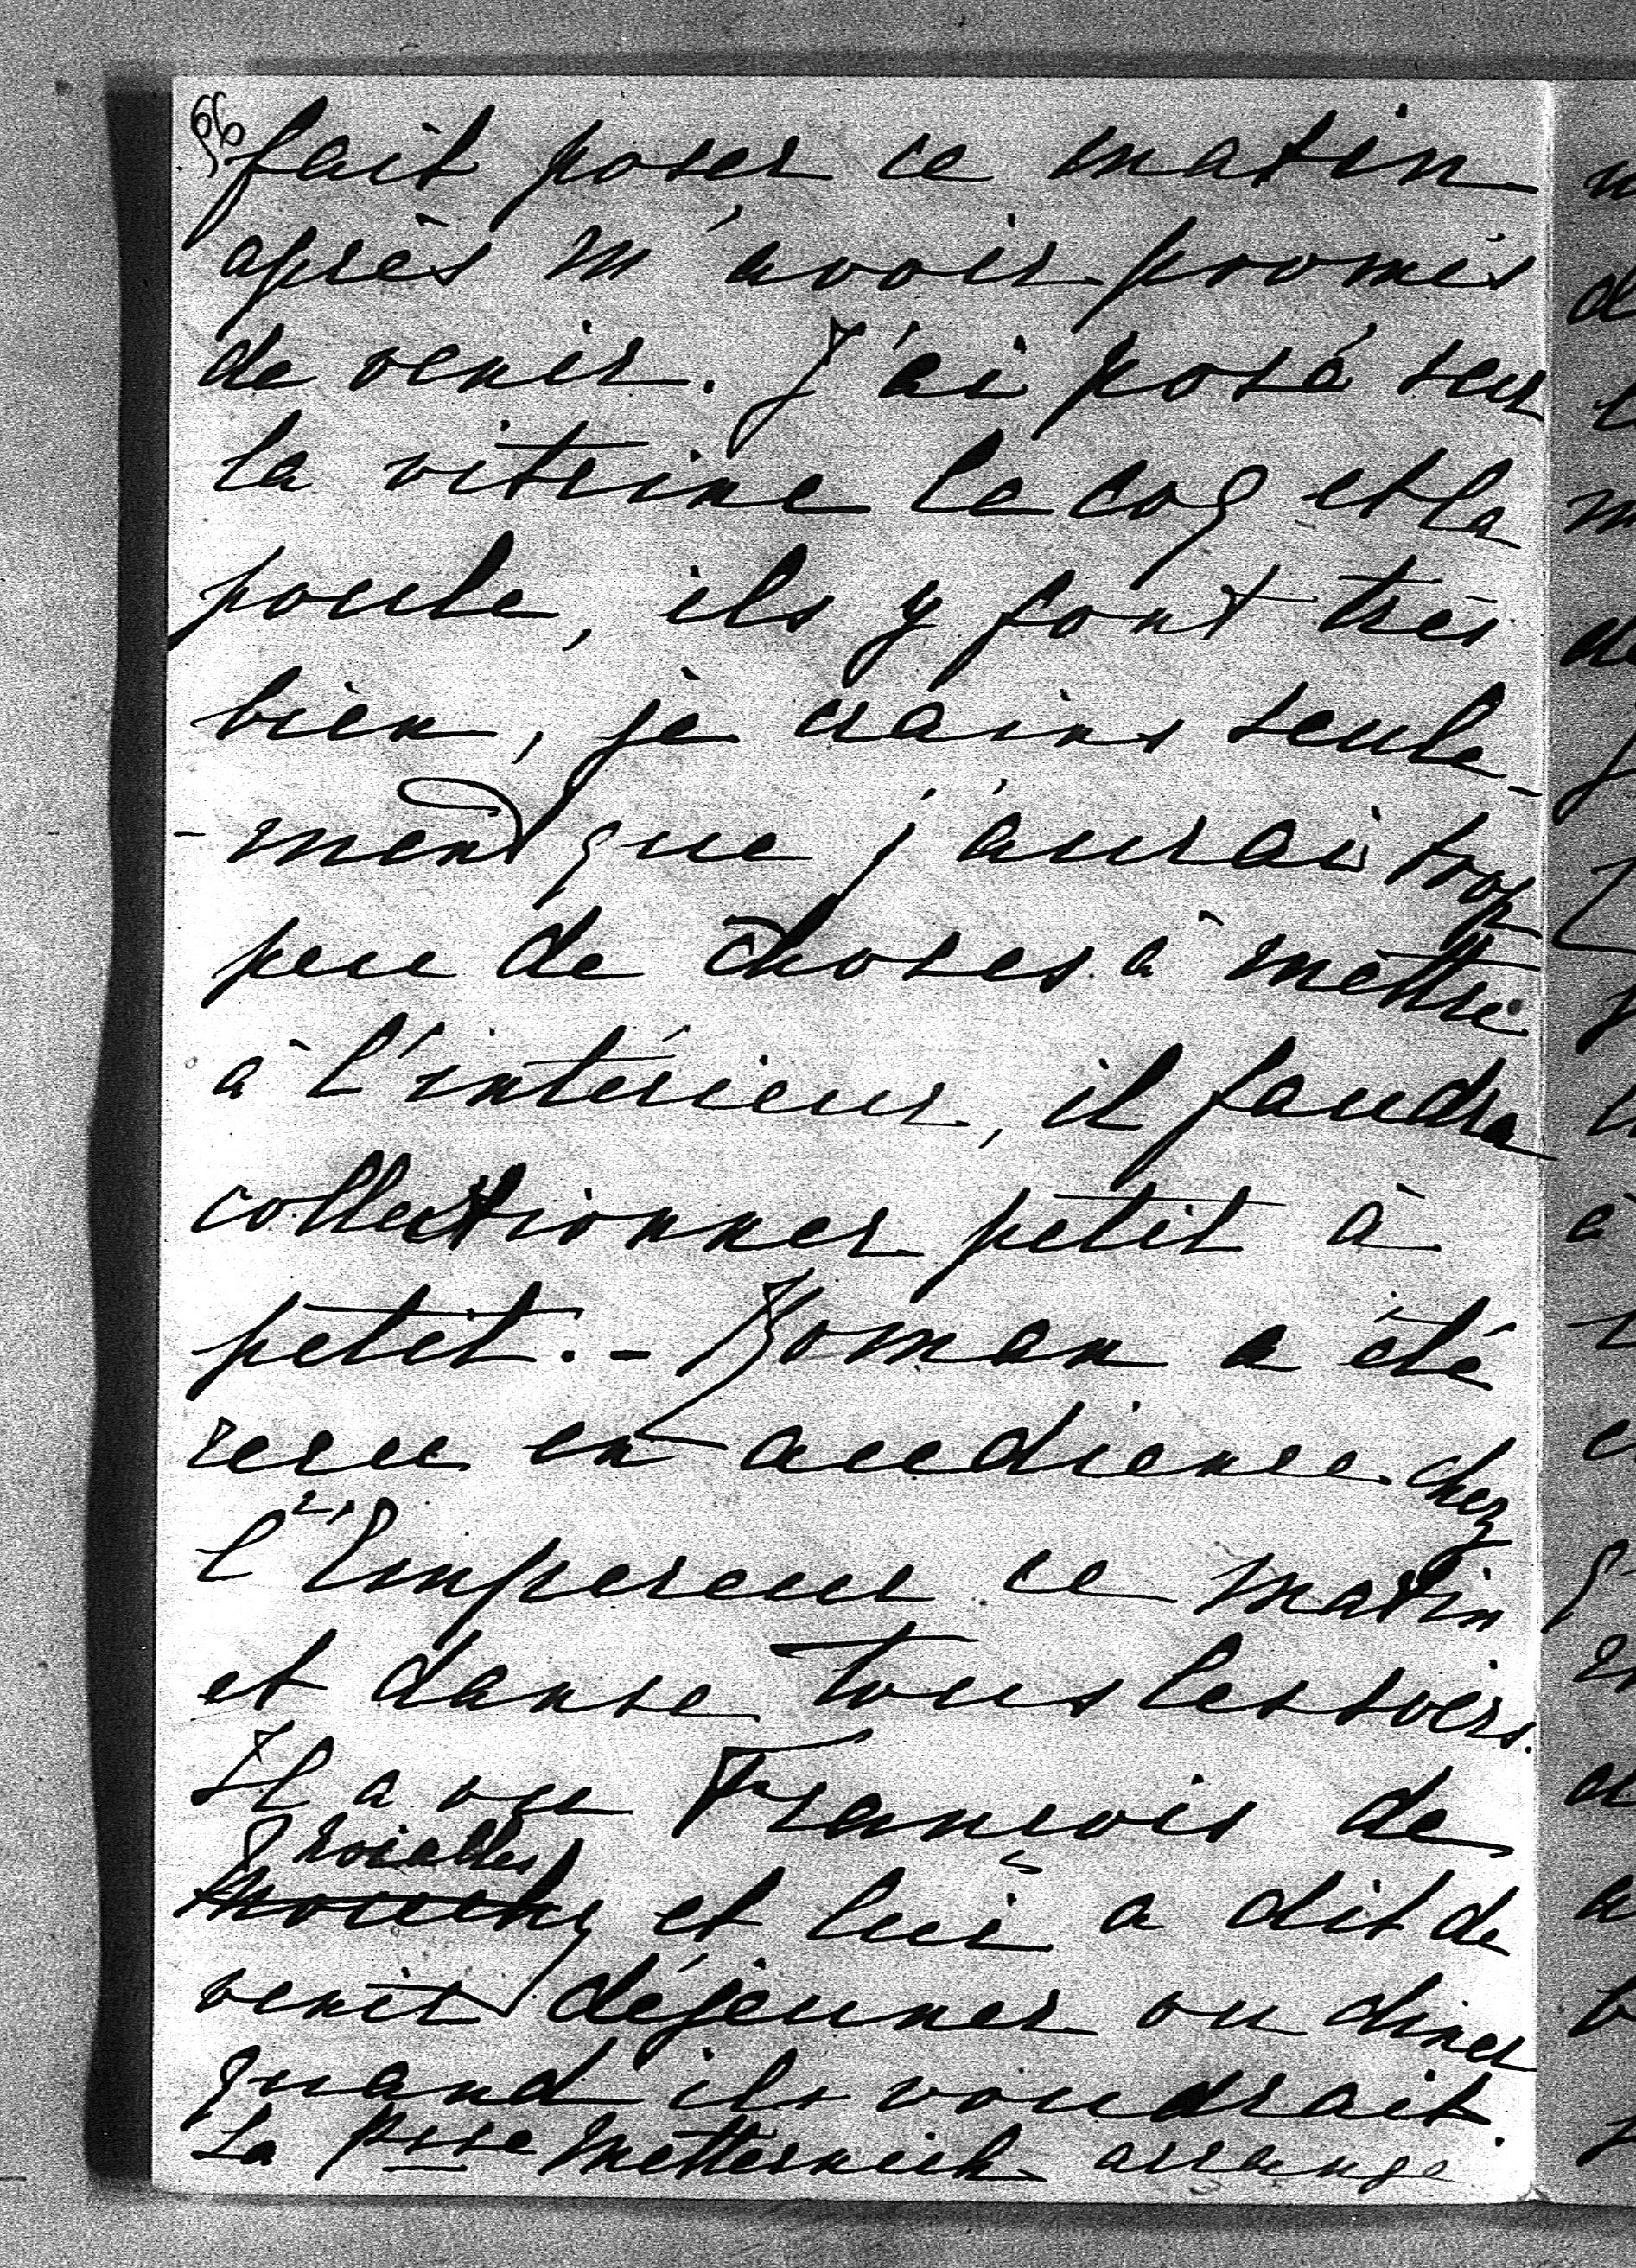 fait poser ce matin
après m'avoir promis
de venir. J'ai posé sur
la vitrine le coq et la
poule, ils y font très
bien, je crains seule-
-ment que j'aurai trop
peu de choses à mettre
à l'intérieur, il faudra
collectionner petit à
petit. - Roman a été
reçu en audience chez
l'Empereur ce matin
et danse tous les soirs.
Il a vu François de
et lui a dit de
venir déjeuner ou diner
quand ils voudrait.
La Psse Metternich arrange